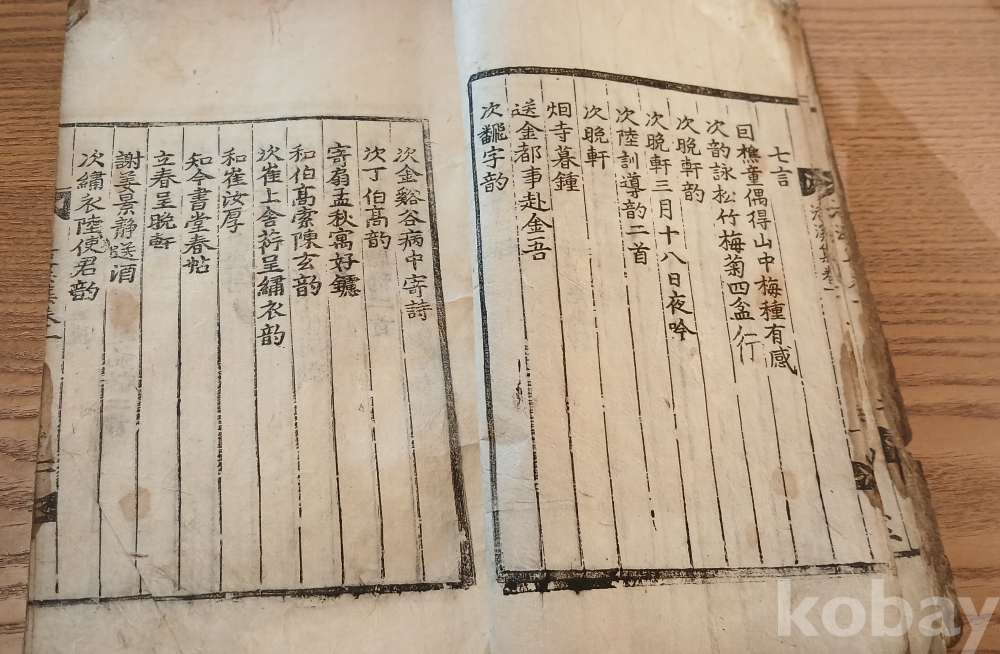 七言
因樵童偶得山中梅種有感
次韵詠松竹梅菊四盆行
次晩軒韵
次晩軒三月十八日夜吟
次陸訓導韵二首
次晩軒
烟寺暮鍾
送金都事赴金吾
次飜字韵
次金谿谷病中寄詩
次丁伯高韵
寄翁孟秋寓好鑪
和伯高索陳玄韵
次崔上舍荐呈繡衣韵
和崔汝厚
知今書堂春帖
立春呈晩軒
謝姜景靜送酒
次繡衣陸使君韵
kobay